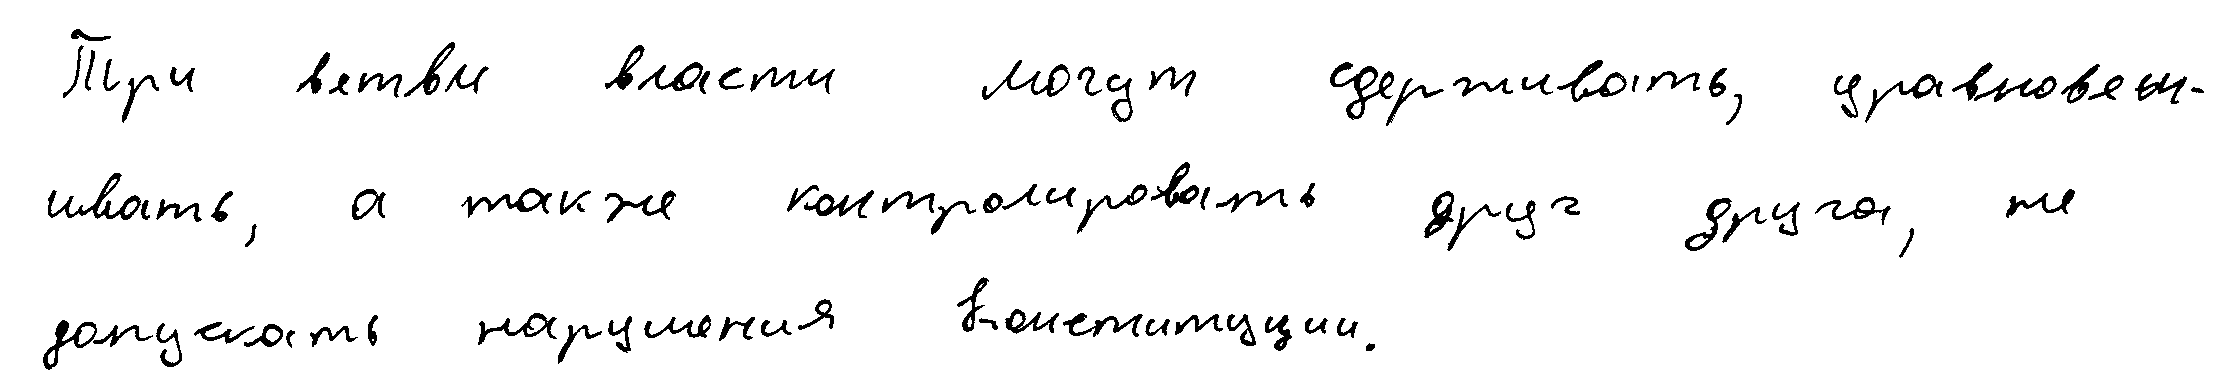 Три ветви власти могут сдерживать, уравновеш-
ивать, а также контролировать друг друга, не
допускать нарушения Конституции.